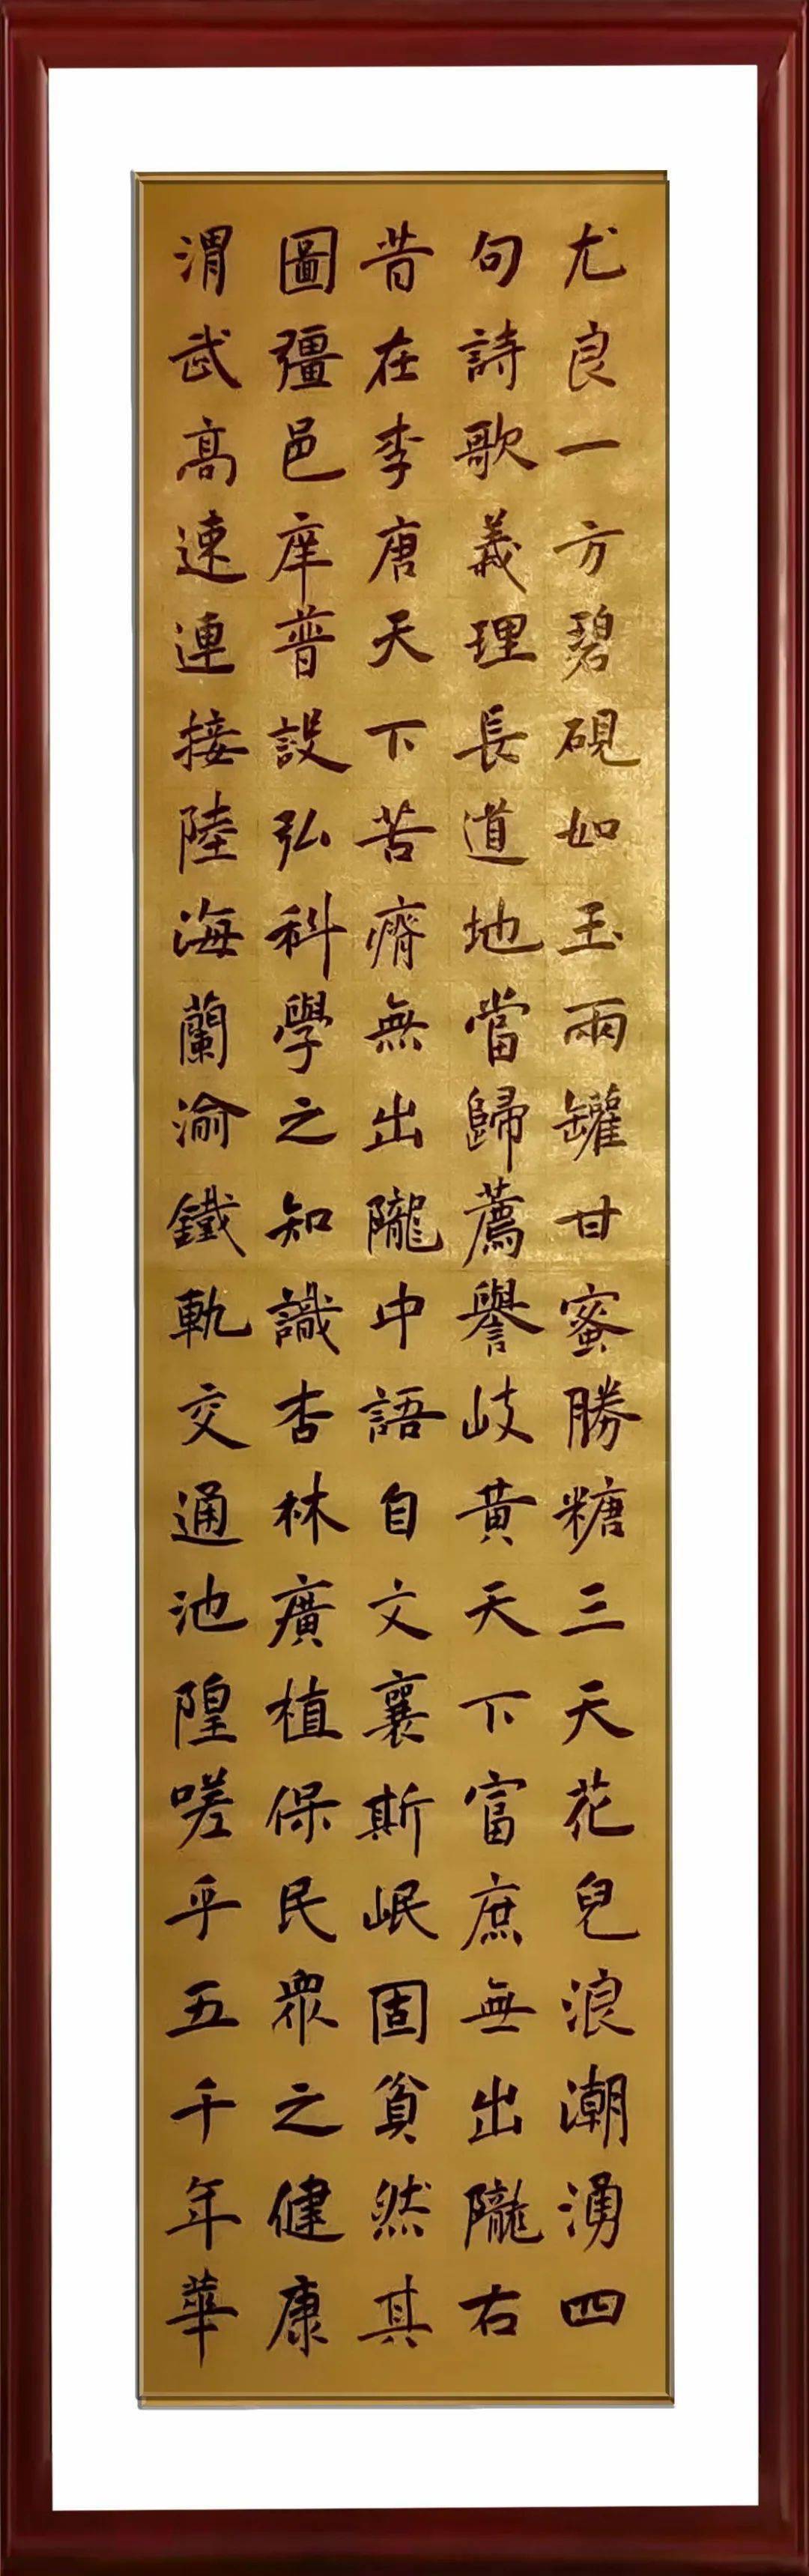 尤良一方碧硯如玉兩罐甘蜜勝糖三天花兒浪潮湧四
句詩歌義理長道地當歸薦譽岐黃天下富庶無出隴右
昔在李唐天下苦瘠無出隴中語自文襄斯岷固貧然其
圖彊邑庠普設弘科學之知識杏林廣植保民眾之健康
渭武高速連接陸海蘭渝鐵軌交通池隍嗟乎五千年華